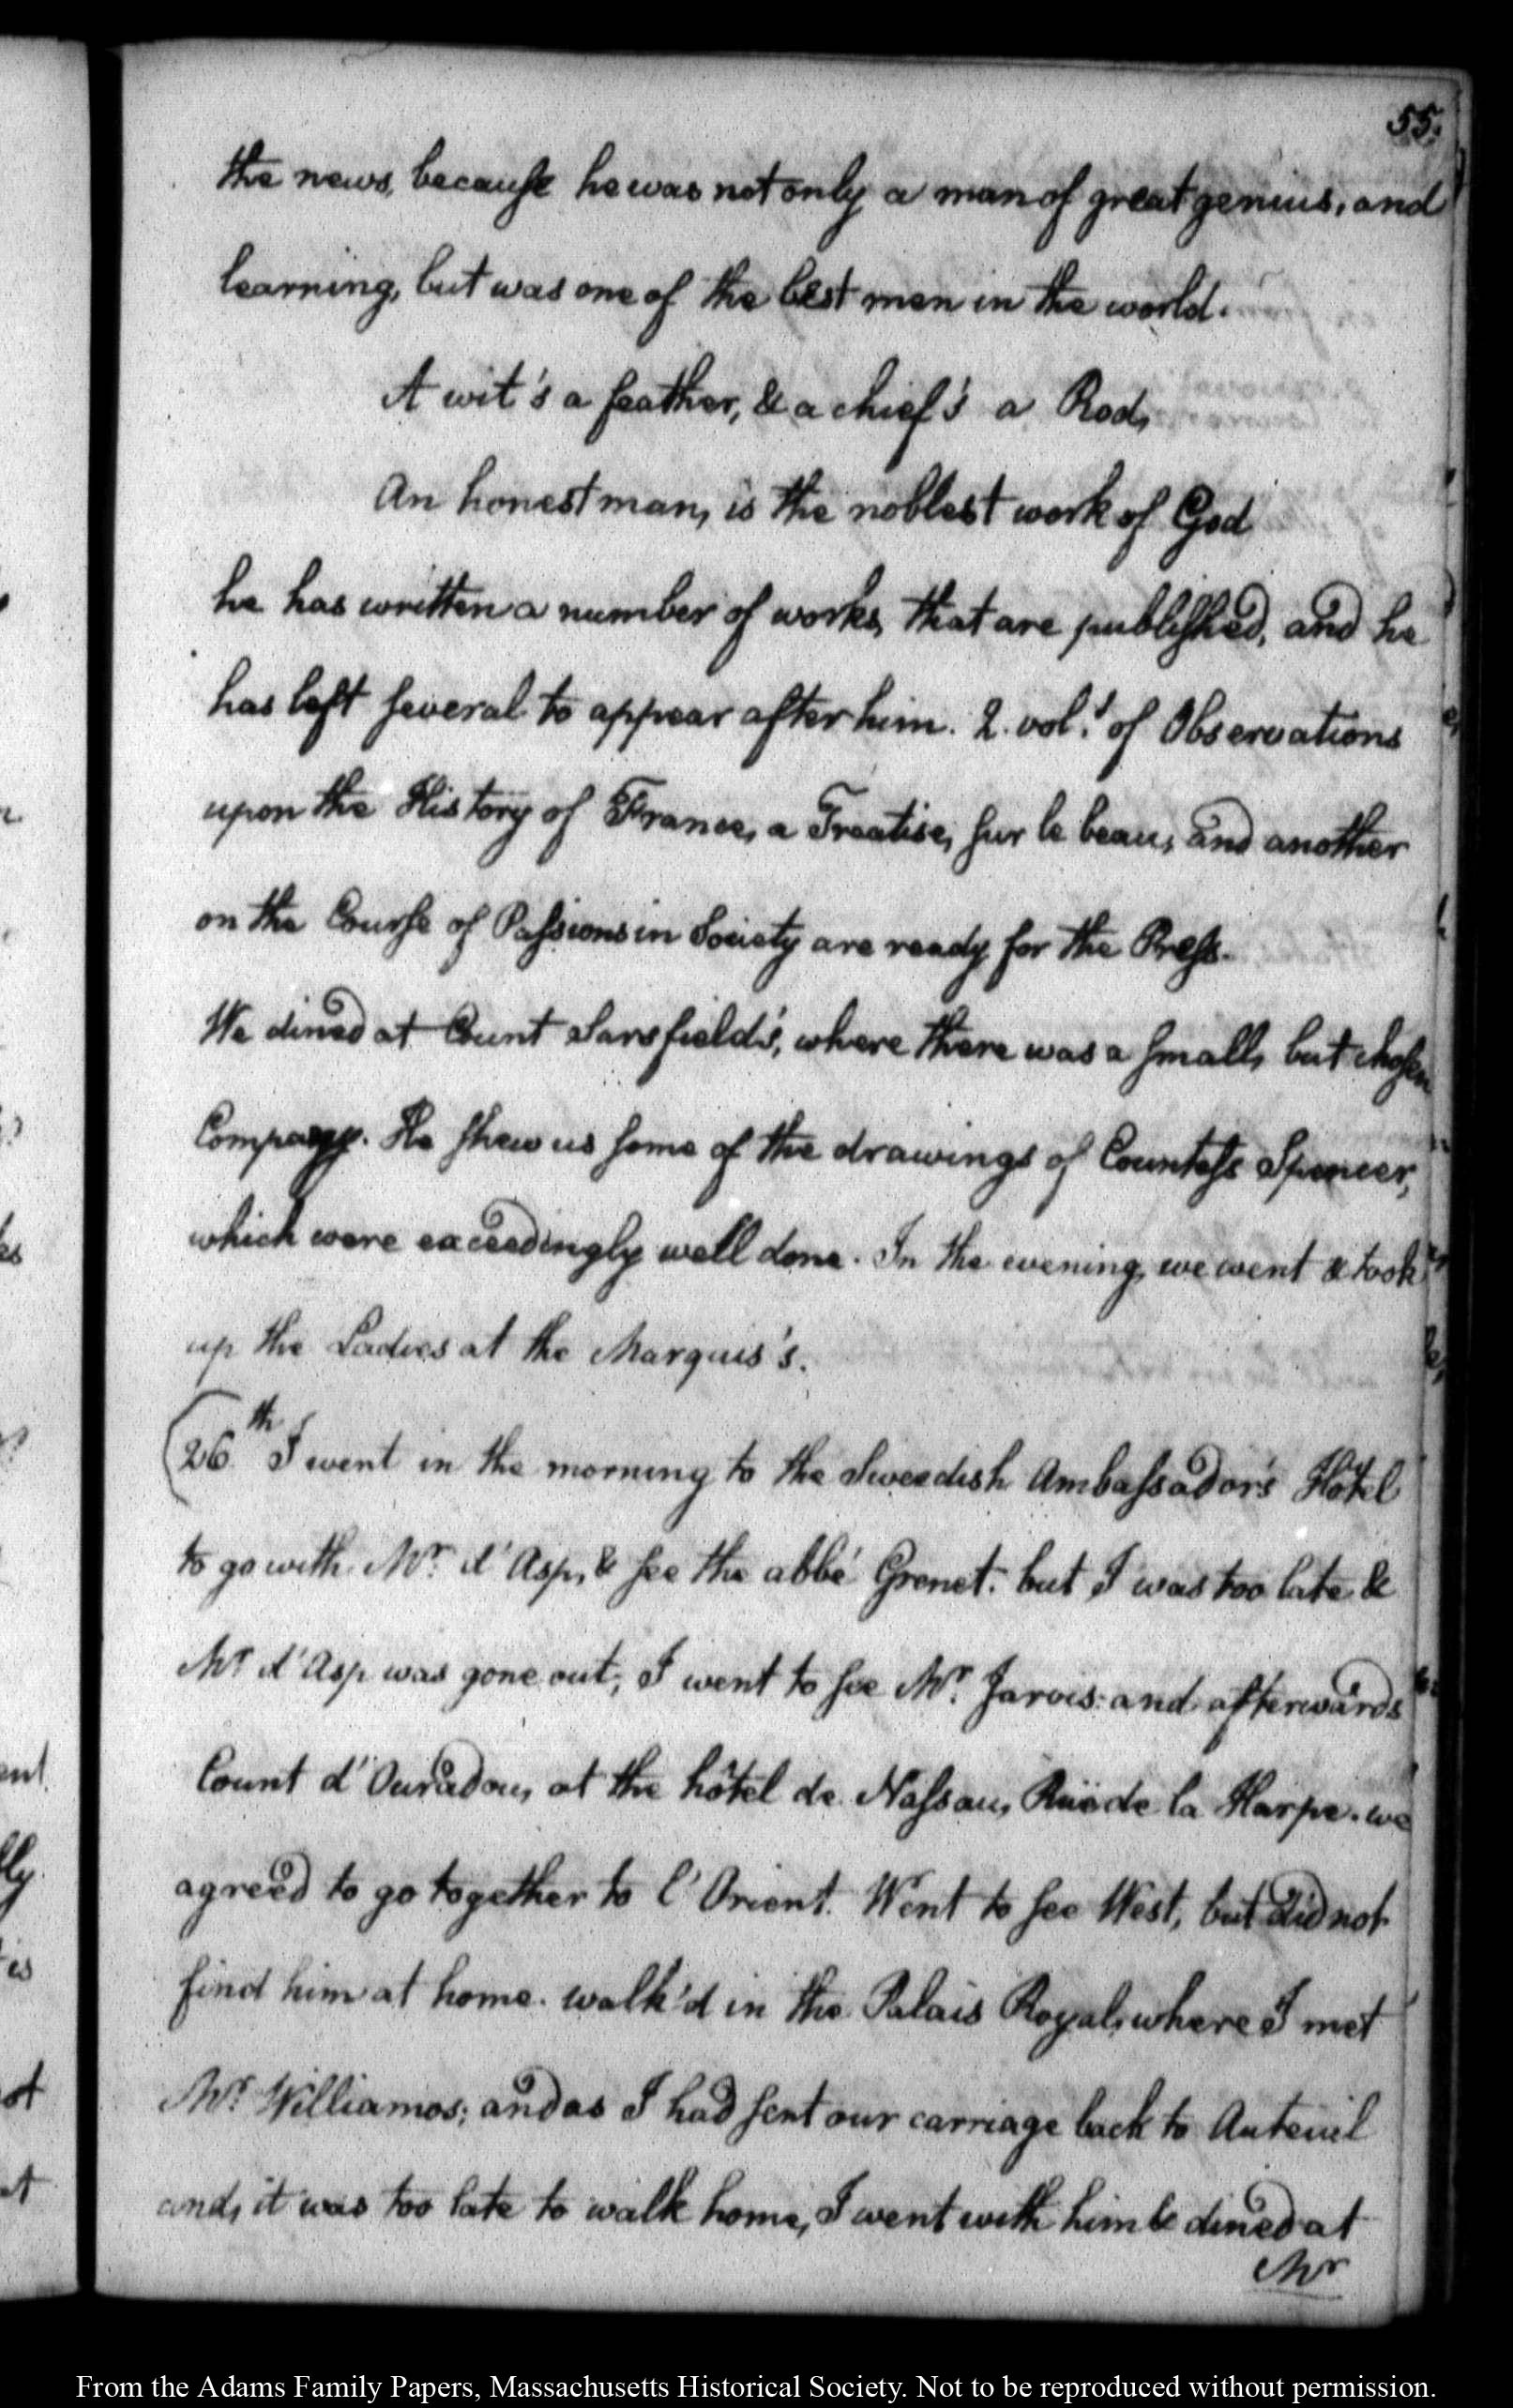 55.
the news, because he was not only a man of great genius, and
learning, but was one of the best men in the world.
A wit's a feather, & a chief's a Rod,
An honest man, is the noblest work of God
he has written a number of works, that are published, and he
has left several to appear after him. 2. vols. of Observations
upon the History of France, a Treatise, sur le beau, and another
on the Course of Passions in Society are ready for the Press.
We dined at Count Sarsfield's, where there was a small, but chosen
Company. He shew us some of the drawings of Countess Spencer,
which were exceedingly well done. In the evening, we went & took
up the Ladies at the Marquis's.
26th I went in the morning to the Sweedish Ambassador's Hôtel
to go with Mr. d'Asp, & see the abbé Grenet: but I was too late &
Mr. d'Asp was gone out; I went to see Mr. Jarvis: and afterwards
Count d'Ouradou, at the hôtel de Nassau, Rüe de la Harpe. we
agreed to go together to l'Orient. Went to see West, but did not
find him at home. walk'd in the Palais Royal, where I met
Mr. Williamos; and as I had sent our carriage back to Auteuil
and, it was too late to walk home, I went with him & dined at
Mr
From the Adams Family Papers, Massachusetts Historical Society. Not to be reproduced without permission.